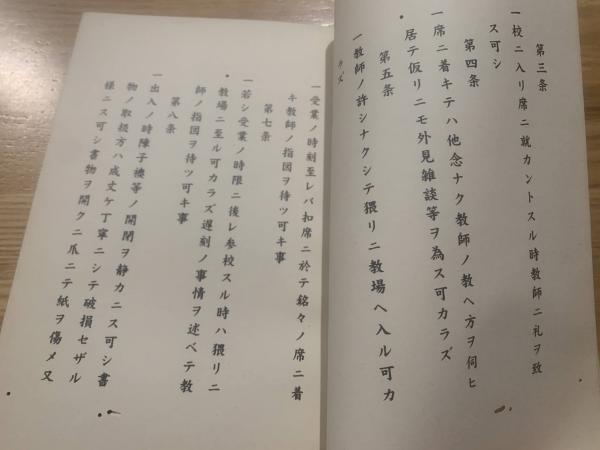 第三条
一校ニ入リ席ニ就カントスル時教師ニ礼ヲ致
ス可シ
第四条
一席ニ着キテハ他念ナク教師ノ教ヘ方ヲ伺ヒ
居テ仮リニモ外見雑談等ヲ為ス可カラズ
第五条
一教師ノ許シナクシテ猥リニ教場ヘ入ル可カ
ラズ
一受業ノ時刻至レバ扣席ニ於テ銘々ノ席ニ着
キ教師ノ指図ヲ待ツ可キ事
第七条
一若シ受業ノ時限ニ後レ参校スル時ハ猥リニ
教場ニ至ル可カラズ遅刻ノ事情ヲ述ベテ教
師ノ指図ヲ待ツ可キ事
第八条
一出入ノ時障子襖等ノ開閉ヲ静カニス可シ書
物ノ取扱方ハ成丈ケ丁寧ニシテ破損セザル
様ニス可シ書物ヲ開クニ爪ニテ紙ヲ傷メ又